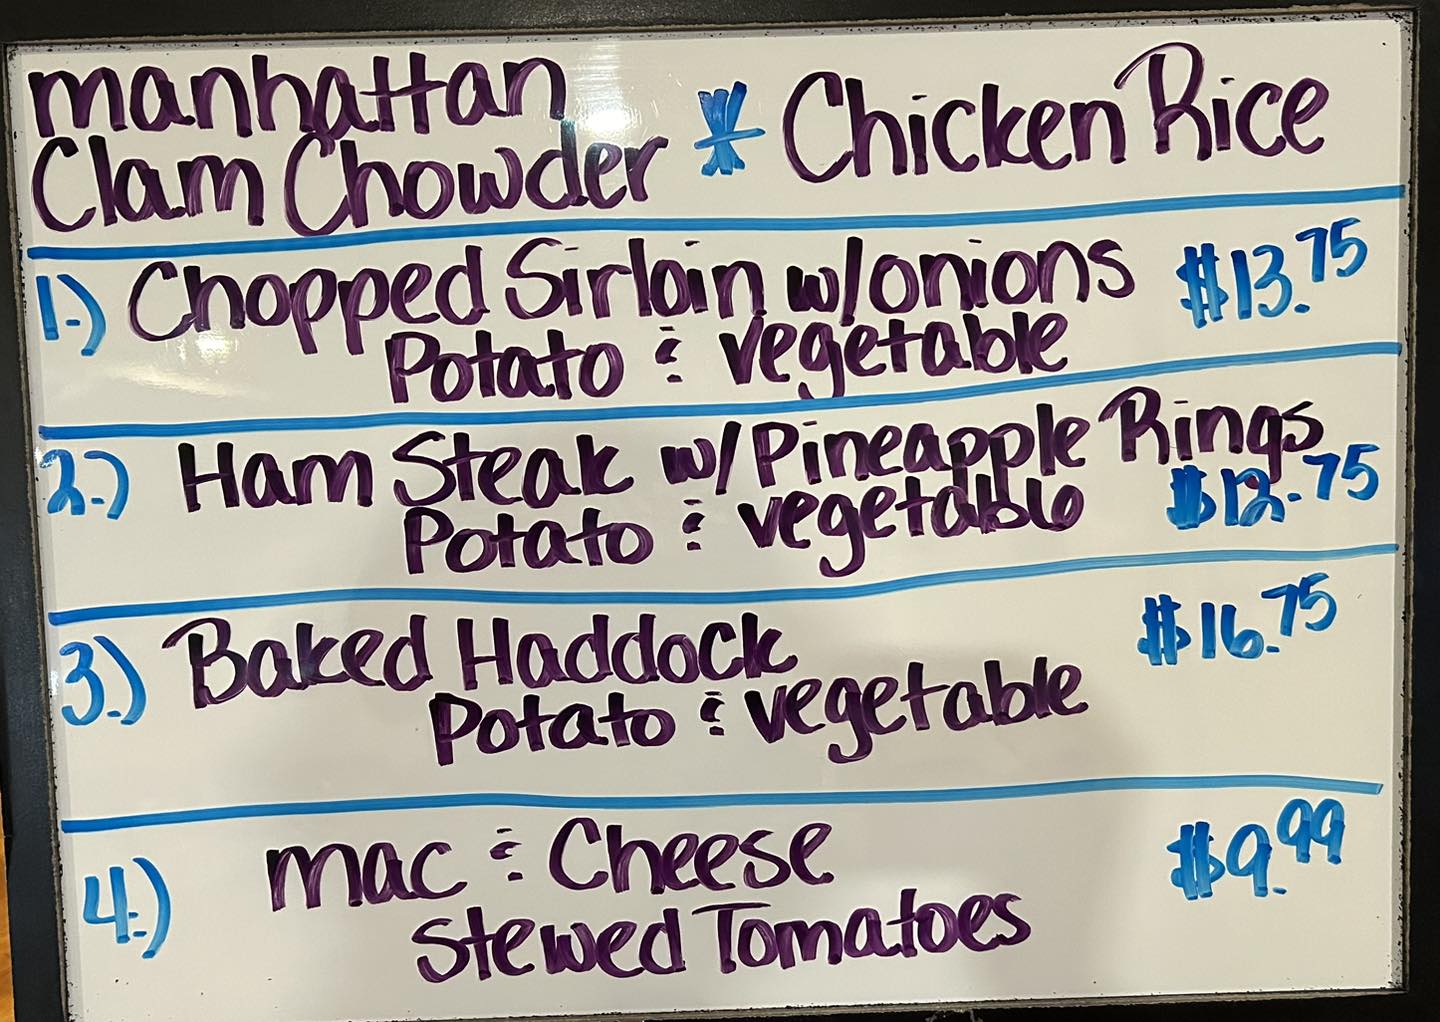 manhattan
Clam Chowder * Chicken Rice
1.) Chopped Sirloin w/onions $13.75
Potato & vegetable
2.) Ham Steak w/Pineapple Rings
Potato & vegetable $12.75
3.) Baked Haddock $16.75
Potato & vegetable
4.) mac & Cheese $9.99
Stewed Tomatoes